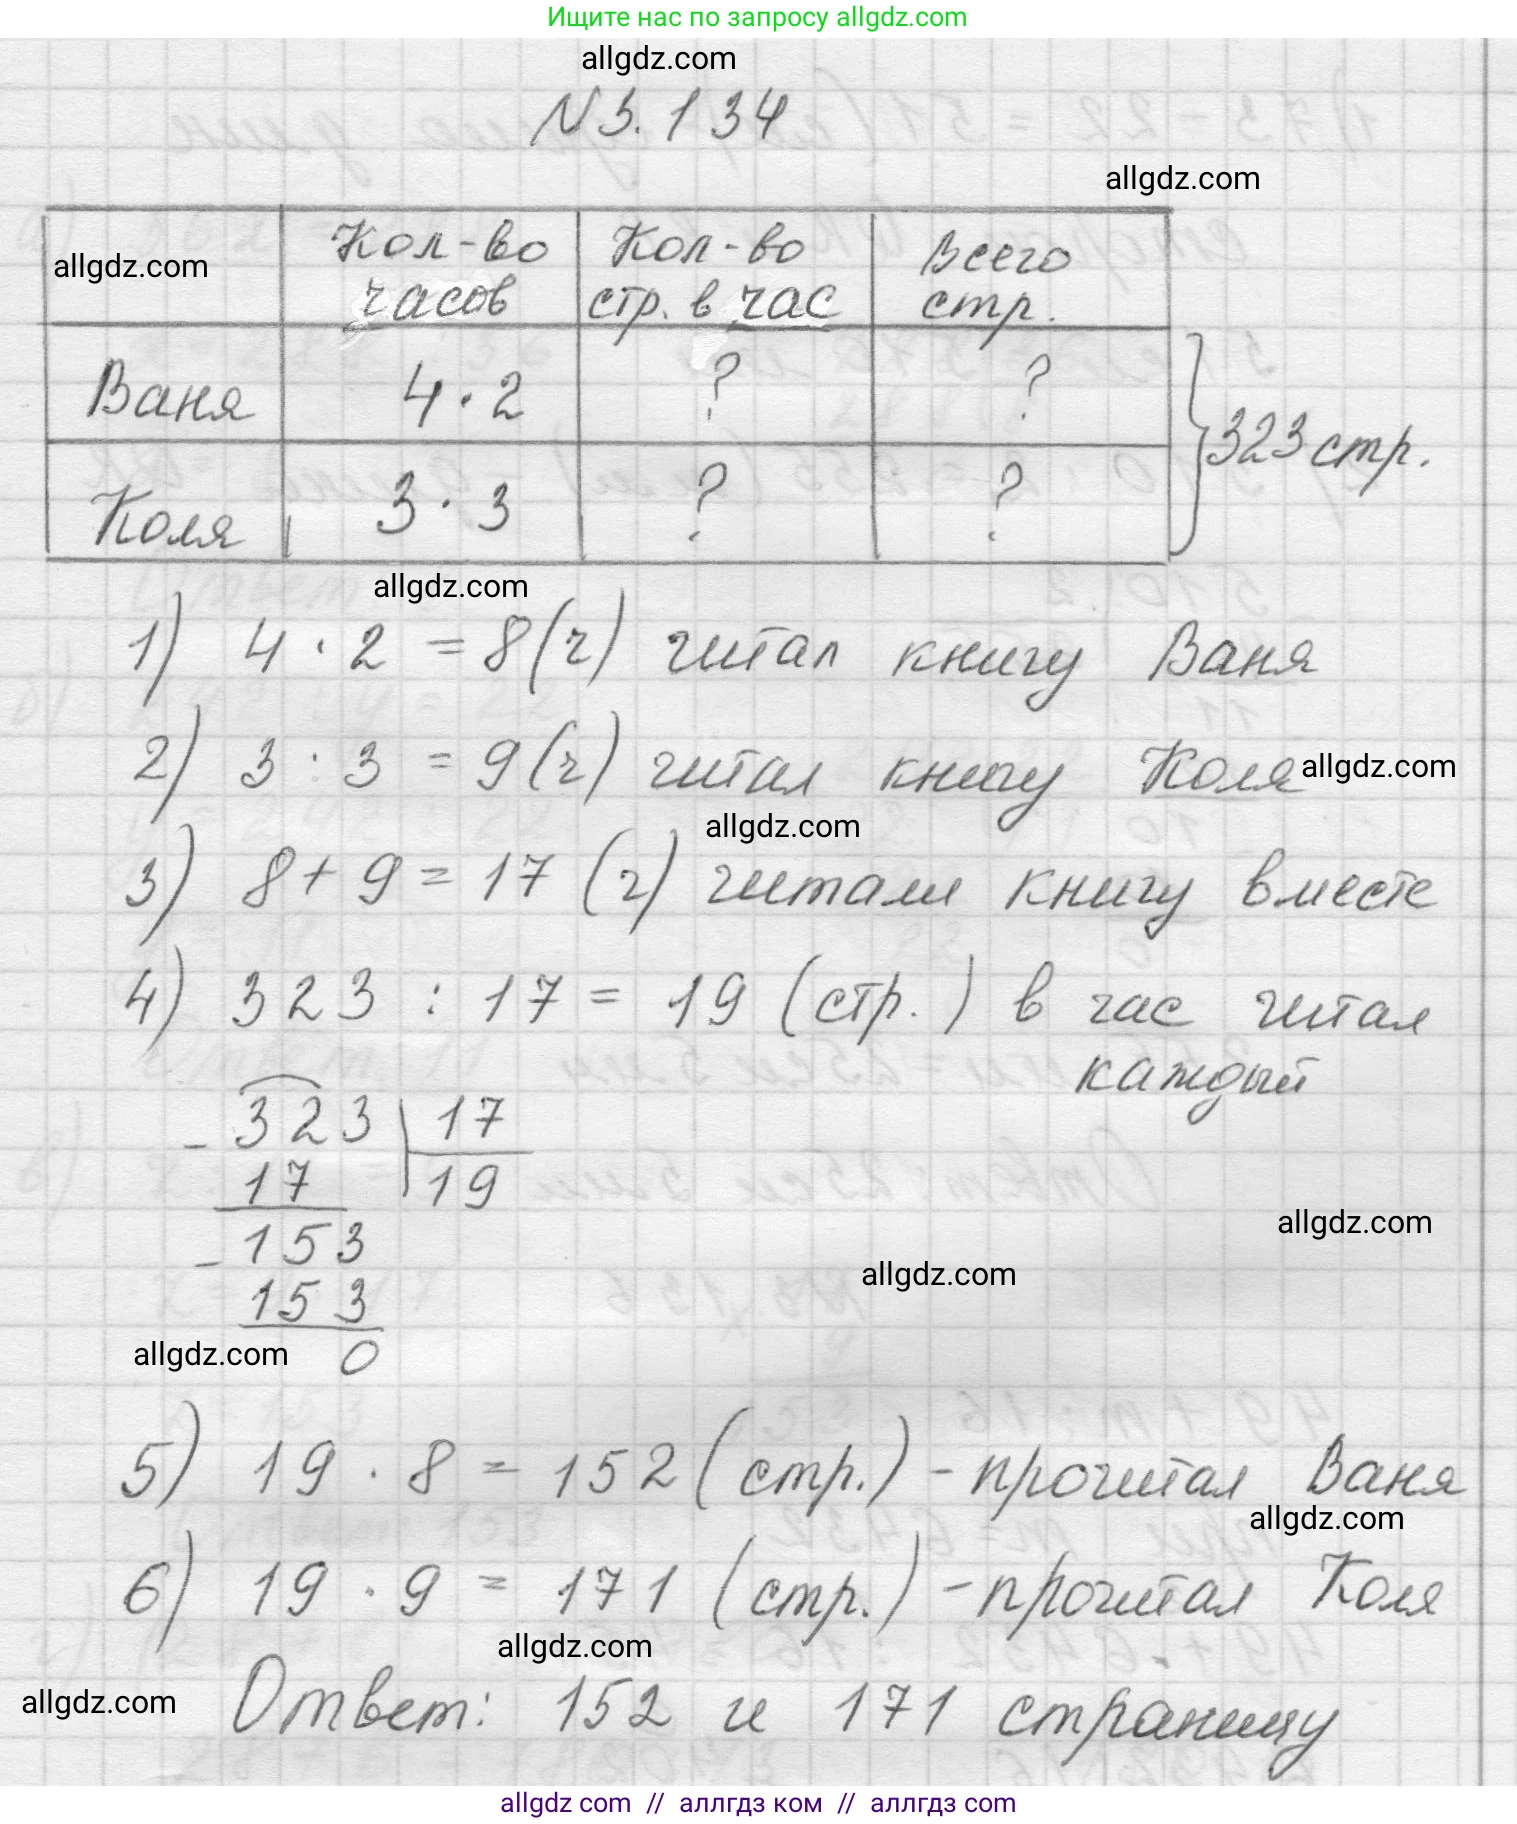 Ищите нас по запросу allgdz.com
allgdz.com
N 3.134
allgdz.com
allgdz.com
Кол-во часов
Кол-во стр. в час
Всего стр.
Ваня 4 · 2 ? ?
Коля 3 · 3 ? ?
} 323 стр.
allgdz.com
1) 4 · 2 = 8 (ч) читал книгу Ваня
2) 3 · 3 = 9 (ч) читал книгу Коля
allgdz.com
allgdz.com
3) 8 + 9 = 17 (ч) читали книгу вместе
4) 323 : 17 = 19 (стр.) в час читал
каждый
- 323 | 17
17 | 19
- 153
153
0
allgdz.com
allgdz.com
allgdz.com
5) 19 · 8 = 152 (стр.) - прочитал Ваня
allgdz.com
6) 19 · 9 = 171 (стр.) - прочитал Коля
allgdz.com
allgdz.com
Ответ: 152 и 171 страницу
allgdz com // аллгдз ком // аллгдз com